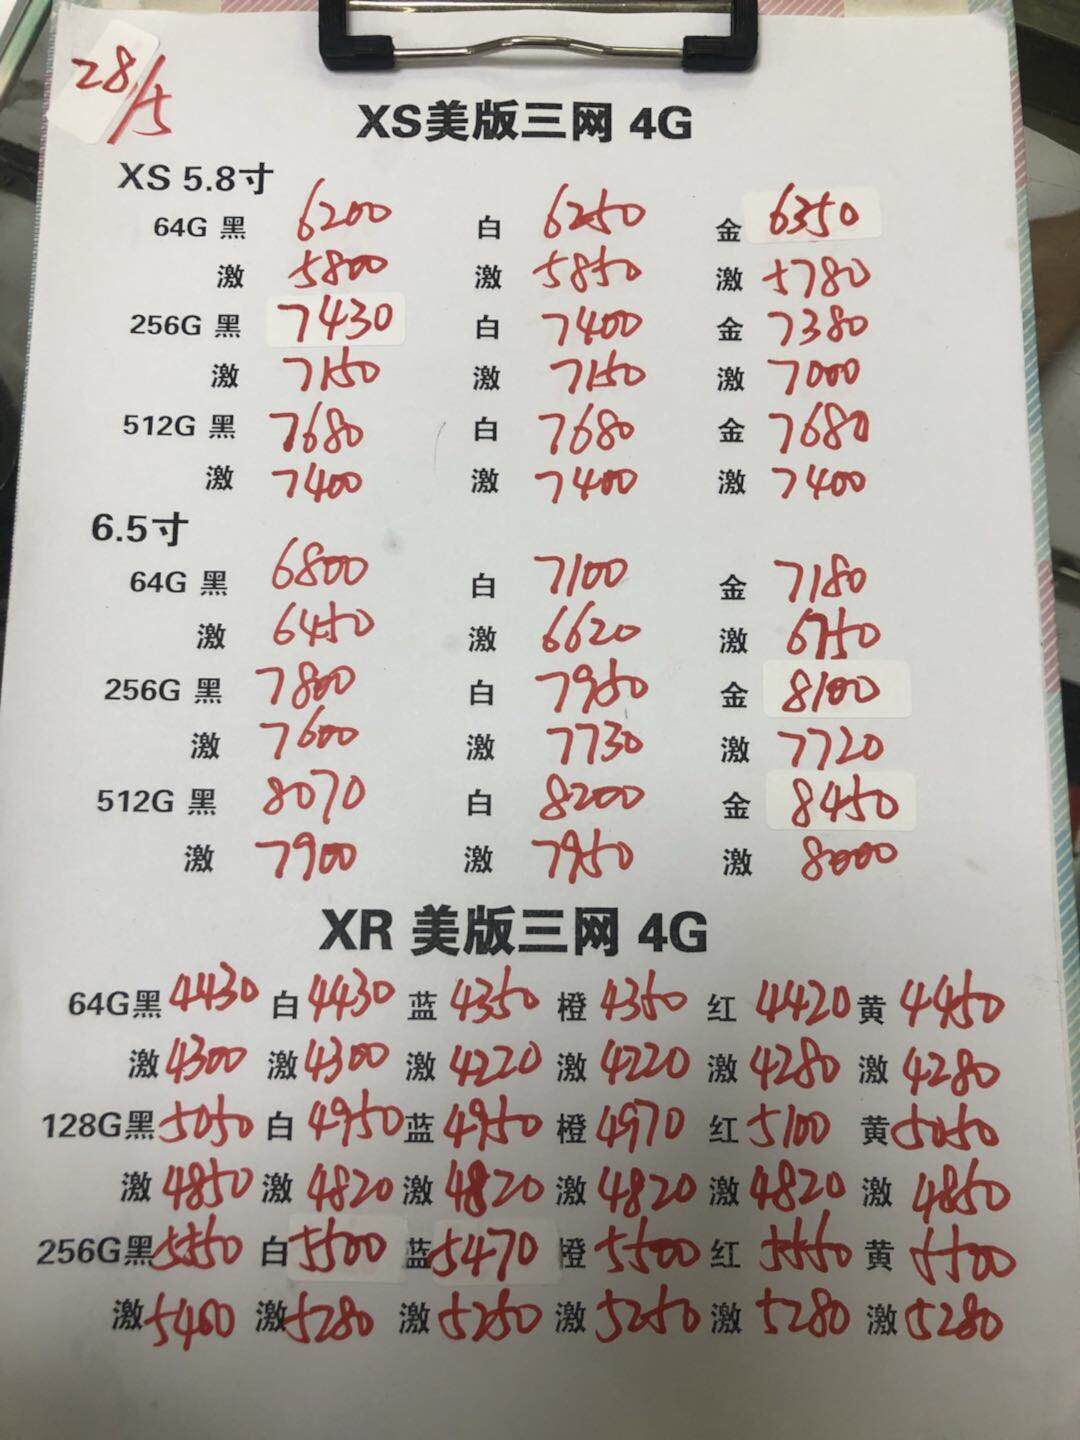 28/5
XS美版三网 4G
XS 5.8寸
64G 黑 6200 白 6250 金 6350
激 5800 激 5850 激 5780
256G 黑 7430 白 7400 金 7380
激 7150 激 7150 激 7000
512G 黑 7680 白 7680 金 7680
激 7400 激 7400 激 7400
6.5寸
64G 黑 6800 白 7100 金 7180
激 6450 激 6620 激 6750
256G 黑 7800 白 7950 金 8100
激 7600 激 7730 激 7720
512G 黑 8070 白 8200 金 8450
激 7900 激 7950 激 8000
XR 美版三网 4G
64G黑 4430 白 4430 蓝 4350 橙 4350 红 4420 黄 4450
激 4300 激 4300 激 4220 激 4220 激 4280 激 4280
128G黑 5050 白 4950 蓝 4950 橙 4970 红 5100 黄 5050
激 4850 激 4820 激 4820 激 4820 激 4820 激 4850
256G黑 5550 白 5500 蓝 5470 橙 5500 红 5550 黄 5500
激 5400 激 5280 激 5250 激 5250 激 5280 激 5280